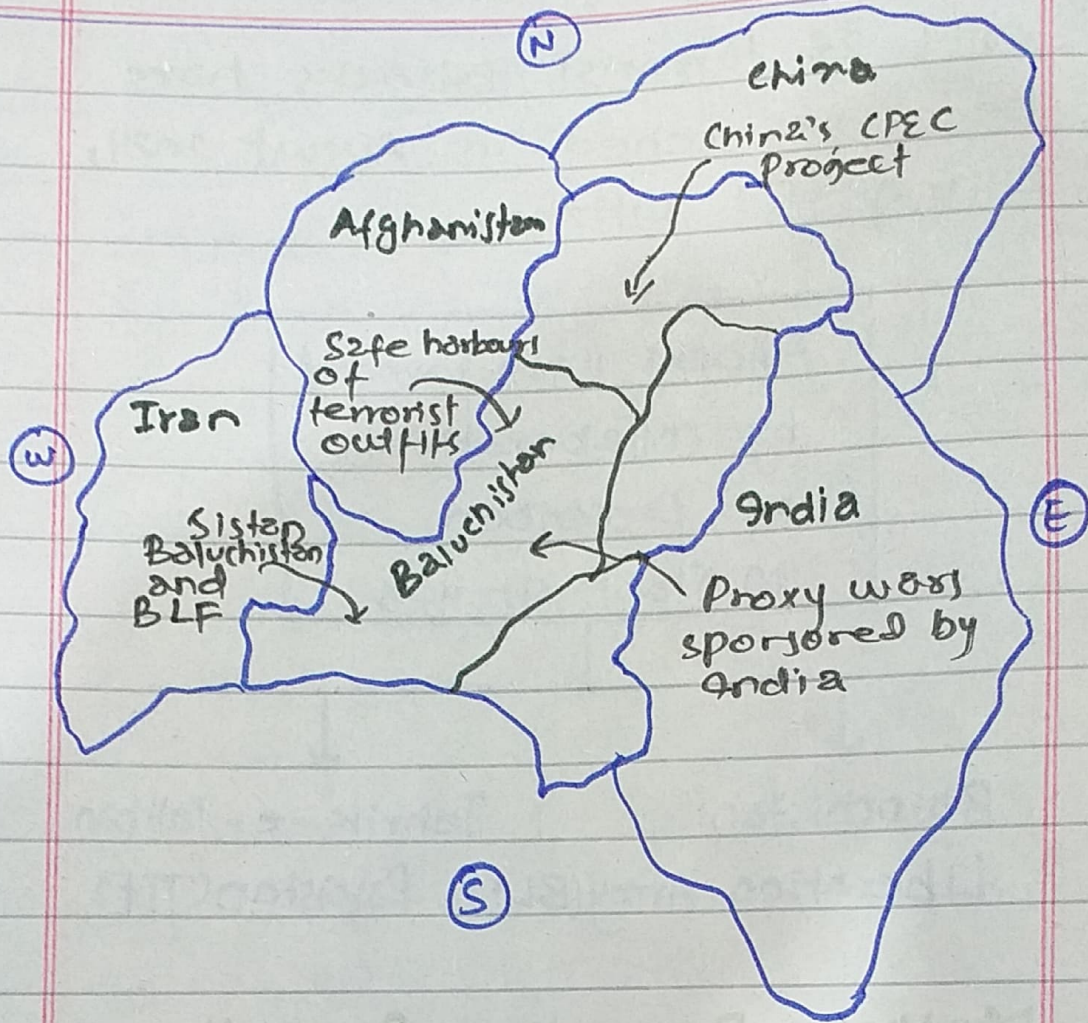 N
China
China's CPEC
Project
Afghanistan
Safe harbours
of
terrorist
outfits
Iran
W
Baluchistan
India
E
Sistan
Baluchistan
and
BLF
Proxy wars
sponsored by
India
S